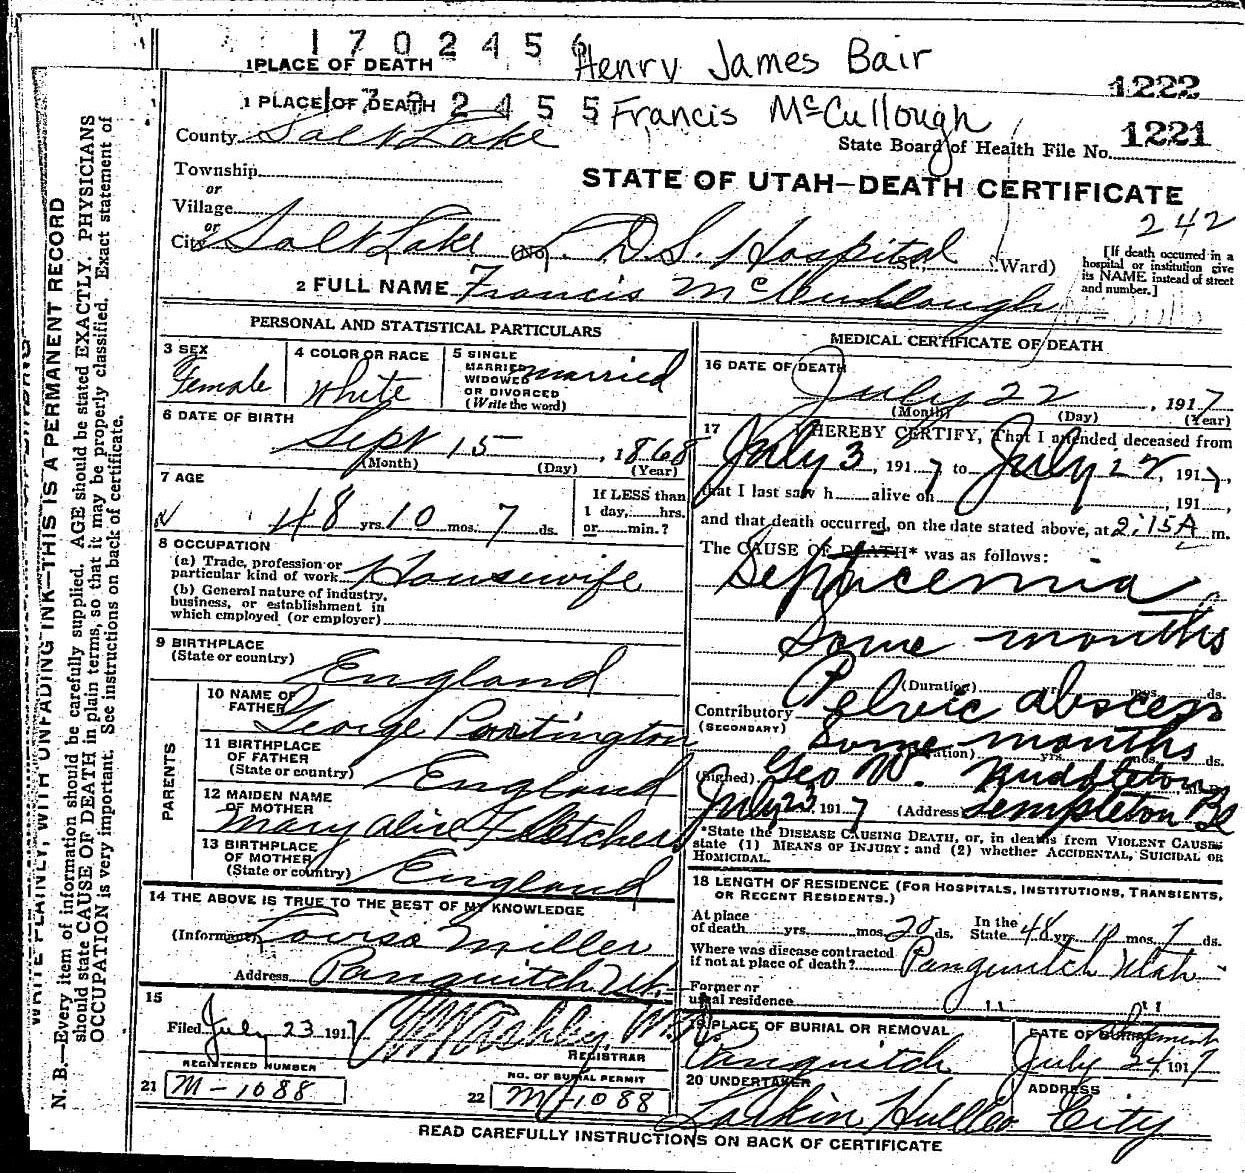 1 7 0 2 4 5 6
Henry James Bair
1 PLACE OF DEATH
1222
1 PLACE OF DEATH 1 7 0 2 4 5 5 Francis McCullough
County Salt Lake
State Board of Health File No. 1221
Township
or
STATE OF UTAH—DEATH CERTIFICATE
Village
or
242
City Salt Lake (No. L. D. S. Hospital St., Ward)
[If death occurred in a hospital or institution give its NAME instead of street and number.]
2 FULL NAME Francis McCullough
PERSONAL AND STATISTICAL PARTICULARS
3 SEX
Female
4 COLOR OR RACE
White
5 SINGLE
MARRIED
WIDOWED
OR DIVORCED
(Write the word)
married
6 DATE OF BIRTH
Sept 15, 1868
(Month) (Day) (Year)
7 AGE
48 yrs. 10 mos. 7 ds.
If LESS than
1 day, hrs.
or min.?
8 OCCUPATION
(a) Trade, profession or
particular kind of work Housewife
(b) General nature of industry,
business, or establishment in
which employed (or employer)
9 BIRTHPLACE
(State or country) England
PARENTS
10 NAME OF
FATHER George Partington
11 BIRTHPLACE
OF FATHER
(State or country) England
12 MAIDEN NAME
OF MOTHER
Mary Alice Fletcher
13 BIRTHPLACE
OF MOTHER
(State or country) England
14 THE ABOVE IS TRUE TO THE BEST OF MY KNOWLEDGE
(Informant) Lovisa Miller
Address Panguitch Ut.
15
Filed July 23 1917
REGISTRAR
REGISTERED NUMBER
21 M-1088
NO. OF BURIAL PERMIT
22 M-1088
MEDICAL CERTIFICATE OF DEATH
16 DATE OF DEATH
July 22, 1917
(Month) (Day) (Year)
17 I HEREBY CERTIFY, That I attended deceased from
July 3, 1917 to July 22, 1917,
that I last saw h alive on , 191 ,
and that death occurred, on the date stated above, at 2:15 A m.
The CAUSE OF DEATH* was as follows:
Septicemia
Some months
(Duration) yrs. mos. ds.
Contributory Pelvic abscess
(SECONDARY)
Some months
(Duration) yrs. mos. ds.
(Signed) Geo W. Middleton M.D.
July 23, 1917 (Address) Templeton Bl
*State the DISEASE CAUSING DEATH, or, in deaths from VIOLENT CAUSES
state (1) MEANS OF INJURY; and (2) whether ACCIDENTAL, SUICIDAL OR
HOMICIDAL.
18 LENGTH OF RESIDENCE (FOR HOSPITALS, INSTITUTIONS, TRANSIENTS,
OR RECENT RESIDENTS.)
At place
of death yrs. mos. 20 ds. In the State 48 yrs. 10 mos. 7 ds.
Where was disease contracted
if not at place of death? Panguitch Utah
Former or
usual residence " "
19 PLACE OF BURIAL OR REMOVAL
Panguitch
DATE OF BURIAL
July 24 1917
20 UNDERTAKER
Larkin Hull Co
ADDRESS
City
READ CAREFULLY INSTRUCTIONS ON BACK OF CERTIFICATE
WRITE PLAINLY, WITH UNFADING INK—THIS IS A PERMANENT RECORD
N. B.—Every item of information should be carefully supplied. AGE should be stated EXACTLY. PHYSICIANS
should state CAUSE OF DEATH in plain terms, so that it may be properly classified. Exact statement of
OCCUPATION is very important. See instructions on back of certificate.